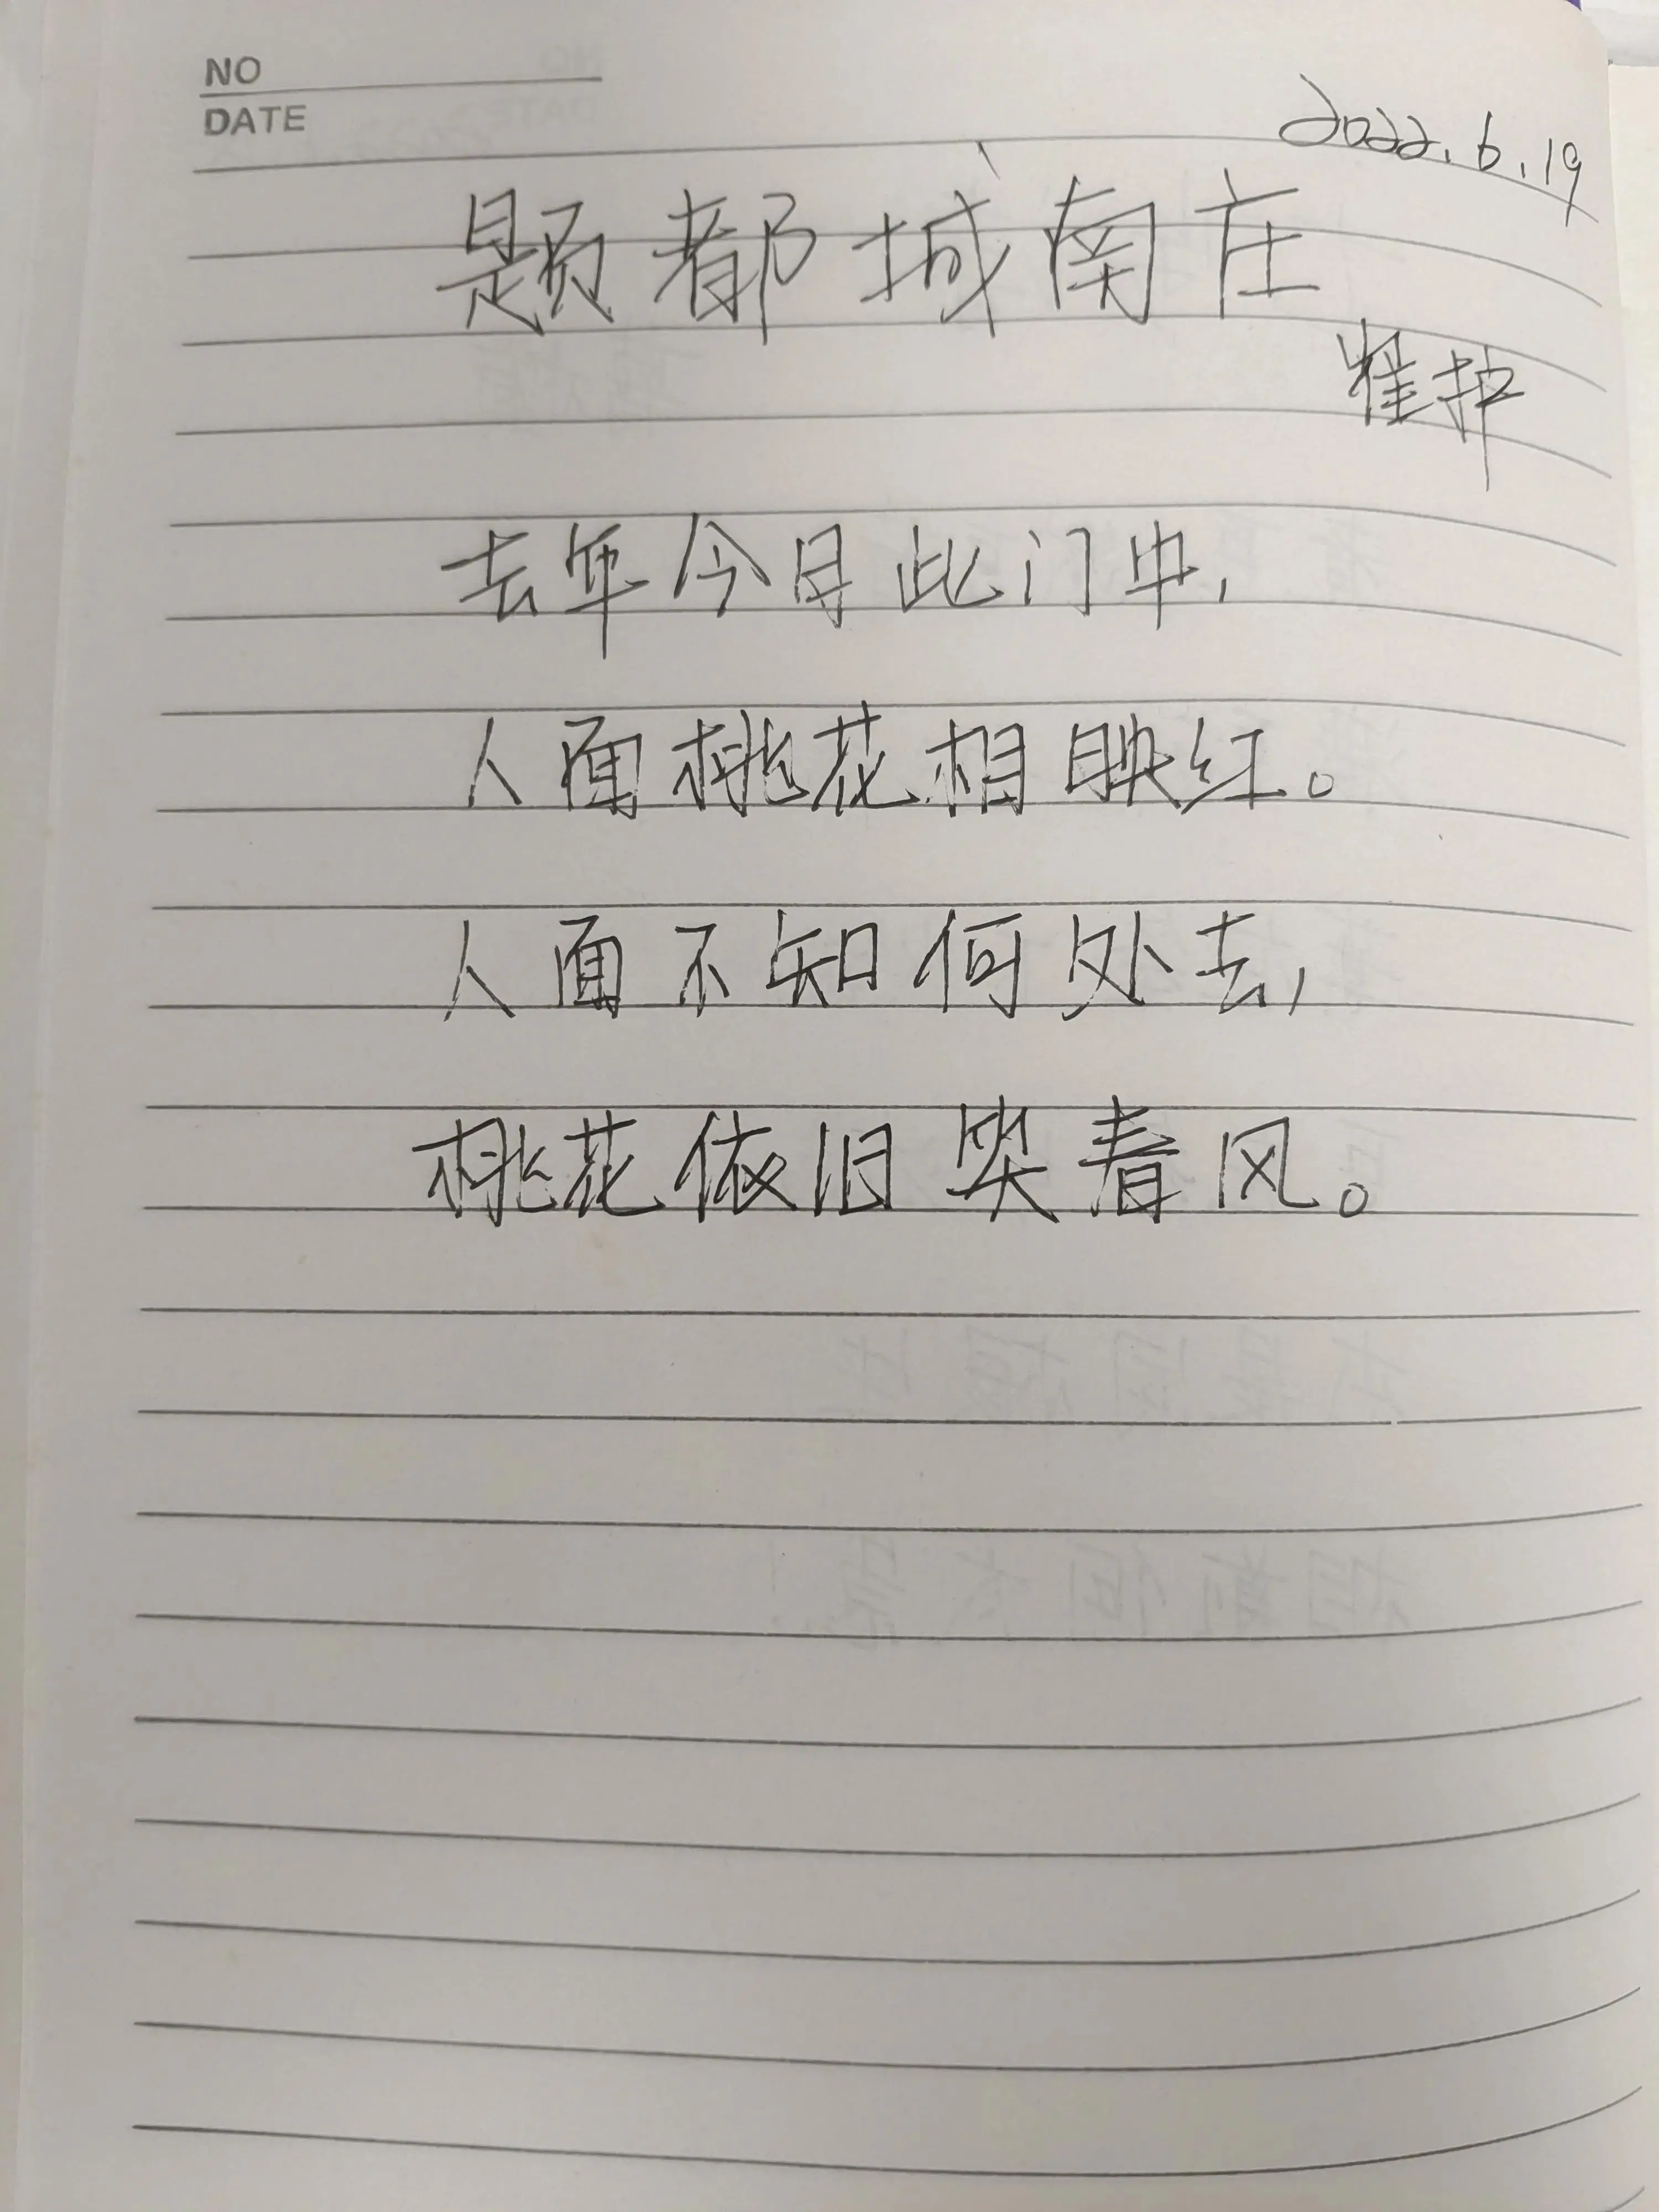 NO
DATE
2022.6.19
题都城南庄
崔护
去年今日此门中,
人面桃花相映红。
人面不知何处去,
桃花依旧笑春风。